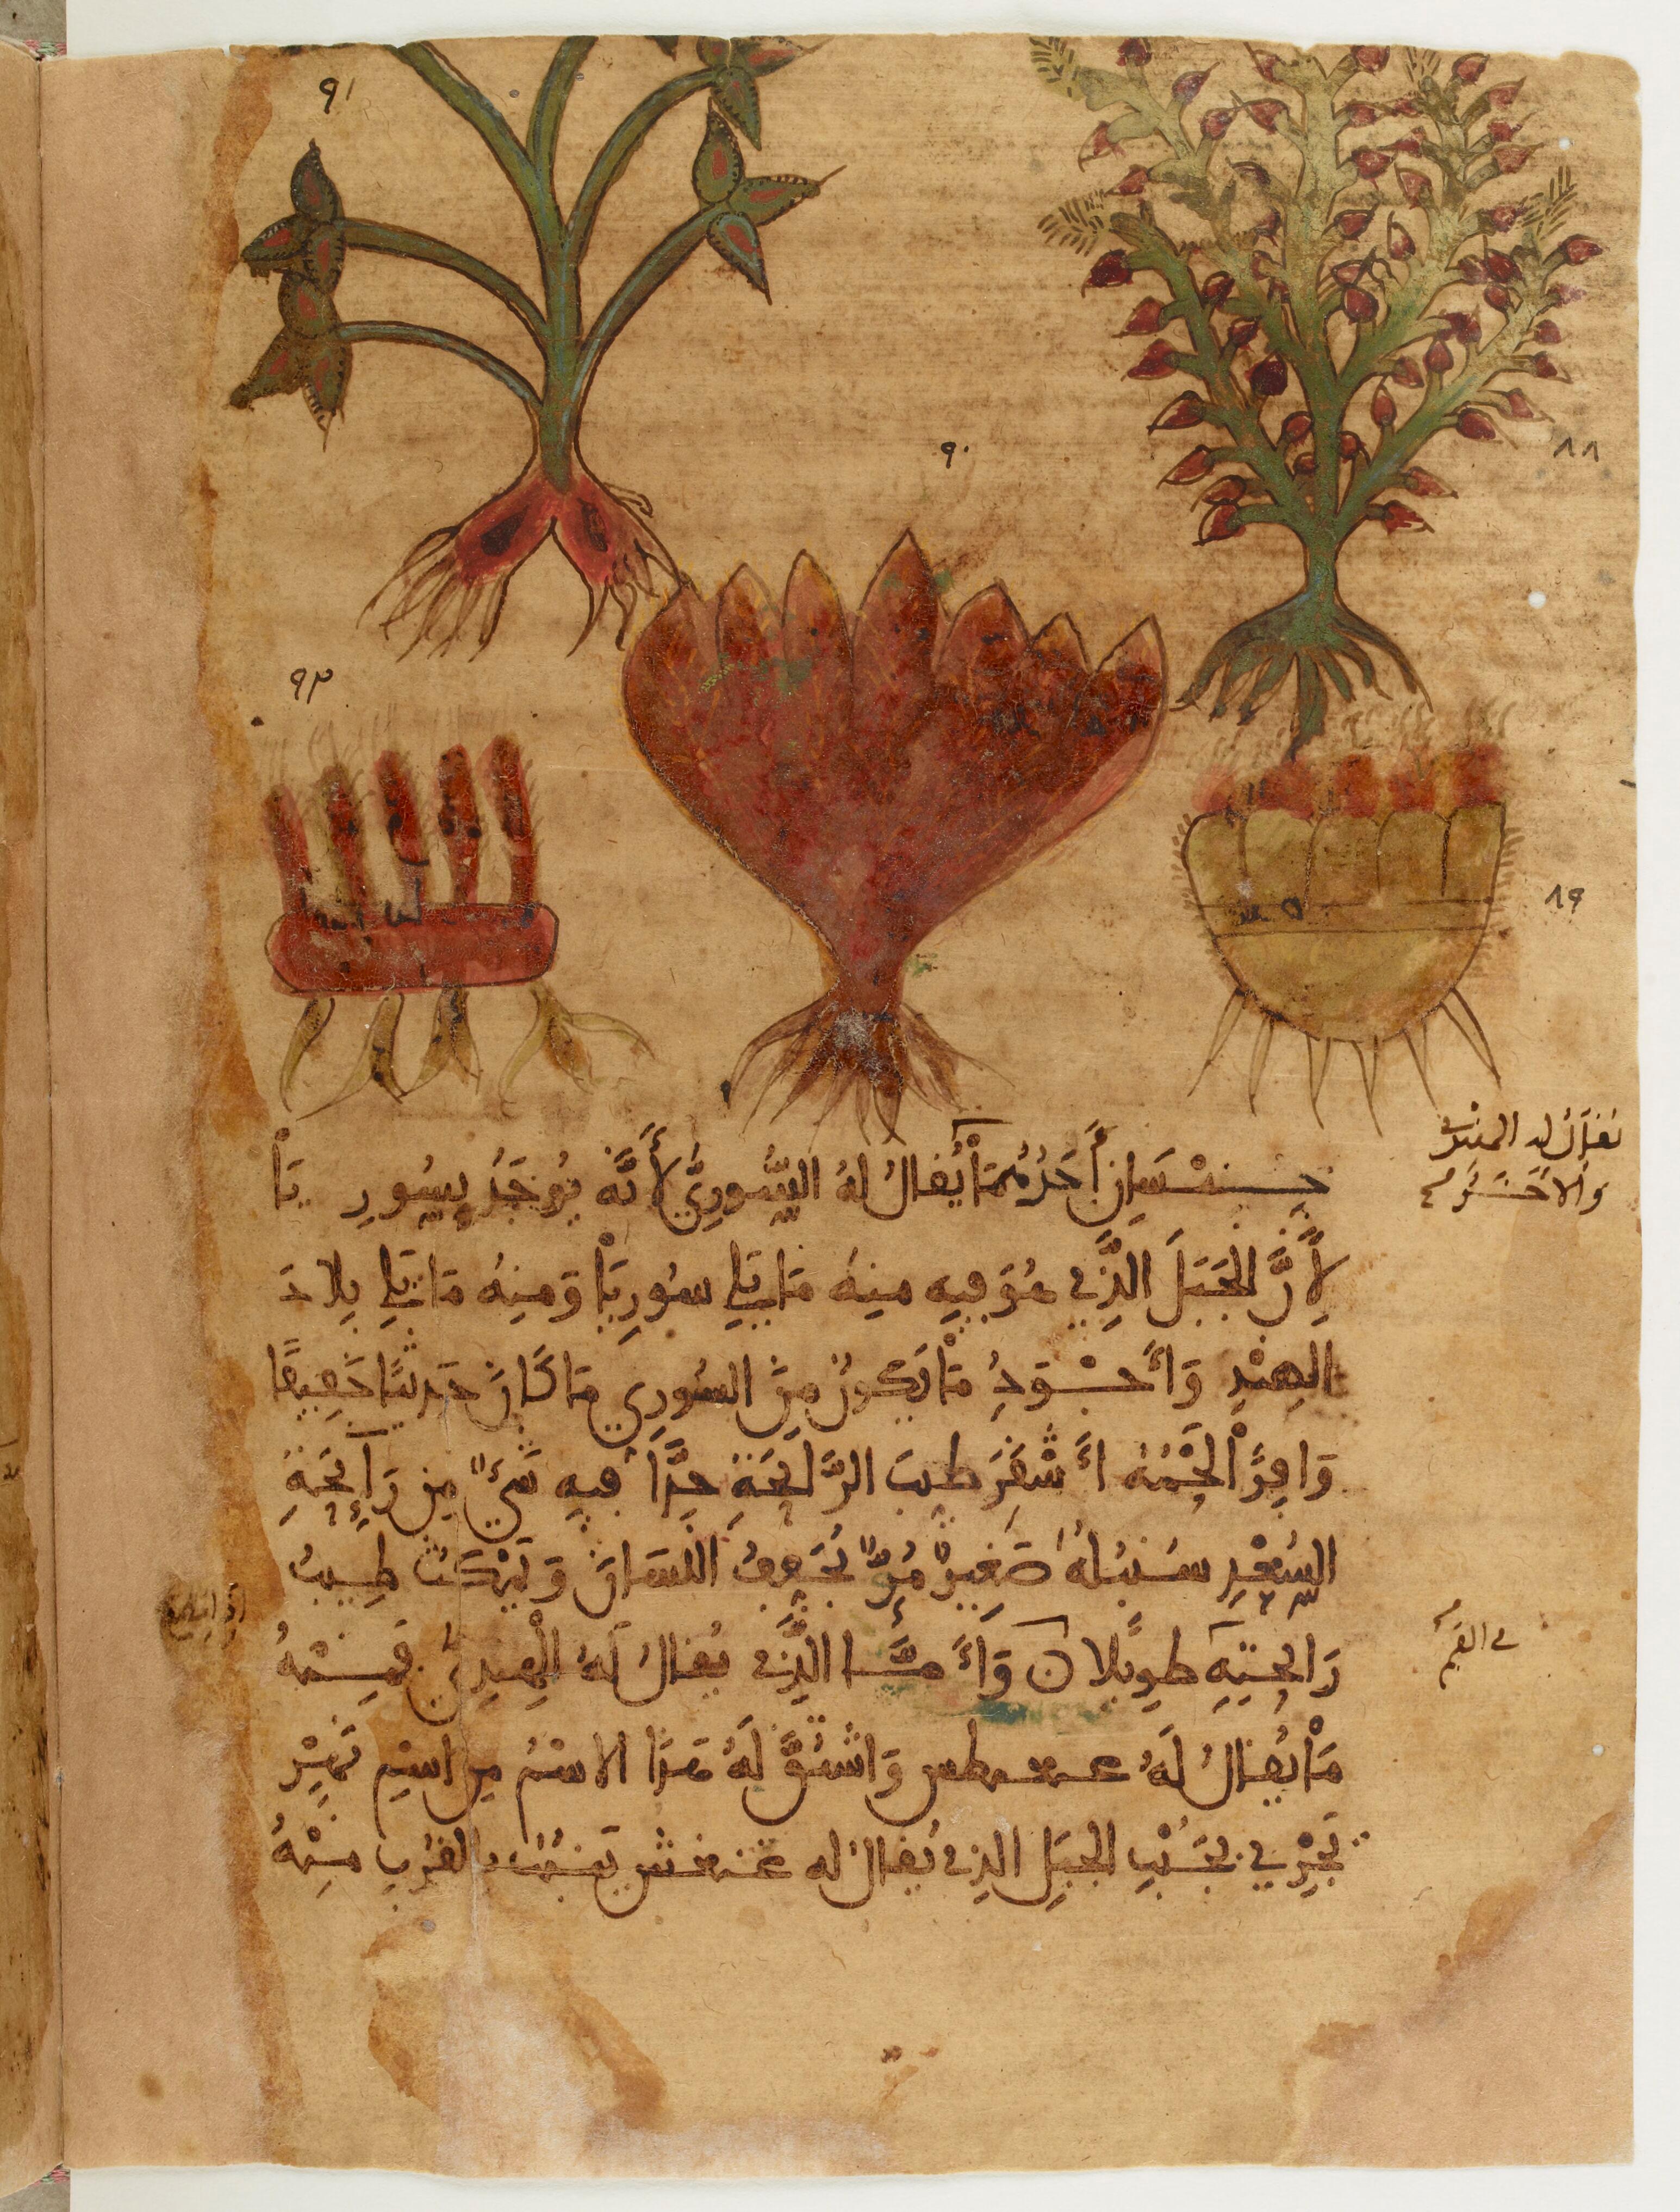 ٩١
٨٨
٩٠
٩٣
٨٩
جنسان أحدهما يقال له السوري لأنه يوجد بسوريا
يقال له الهندي
والاخر
لأن الجبل الذي هو فيه منه ما يلي سوريا ومنه ما يلي بلاد
الهند وأجود ما يكون من السوري ما كان حديثا خفيفا
وافر الجمة أشقر طيب الرائحة جدا فيه شيء من رائحة
السعد سنبله صغير مر يجفف اللسان ويمكث طيب
رائحته طويلا وأما الذي يقال له الهندي فمنه
في الفم
ما يقال له واشتق له هذا الاسم من اسم نهر
يجري بجنب الجبل الذي يقال له ينبت بالقرب منه